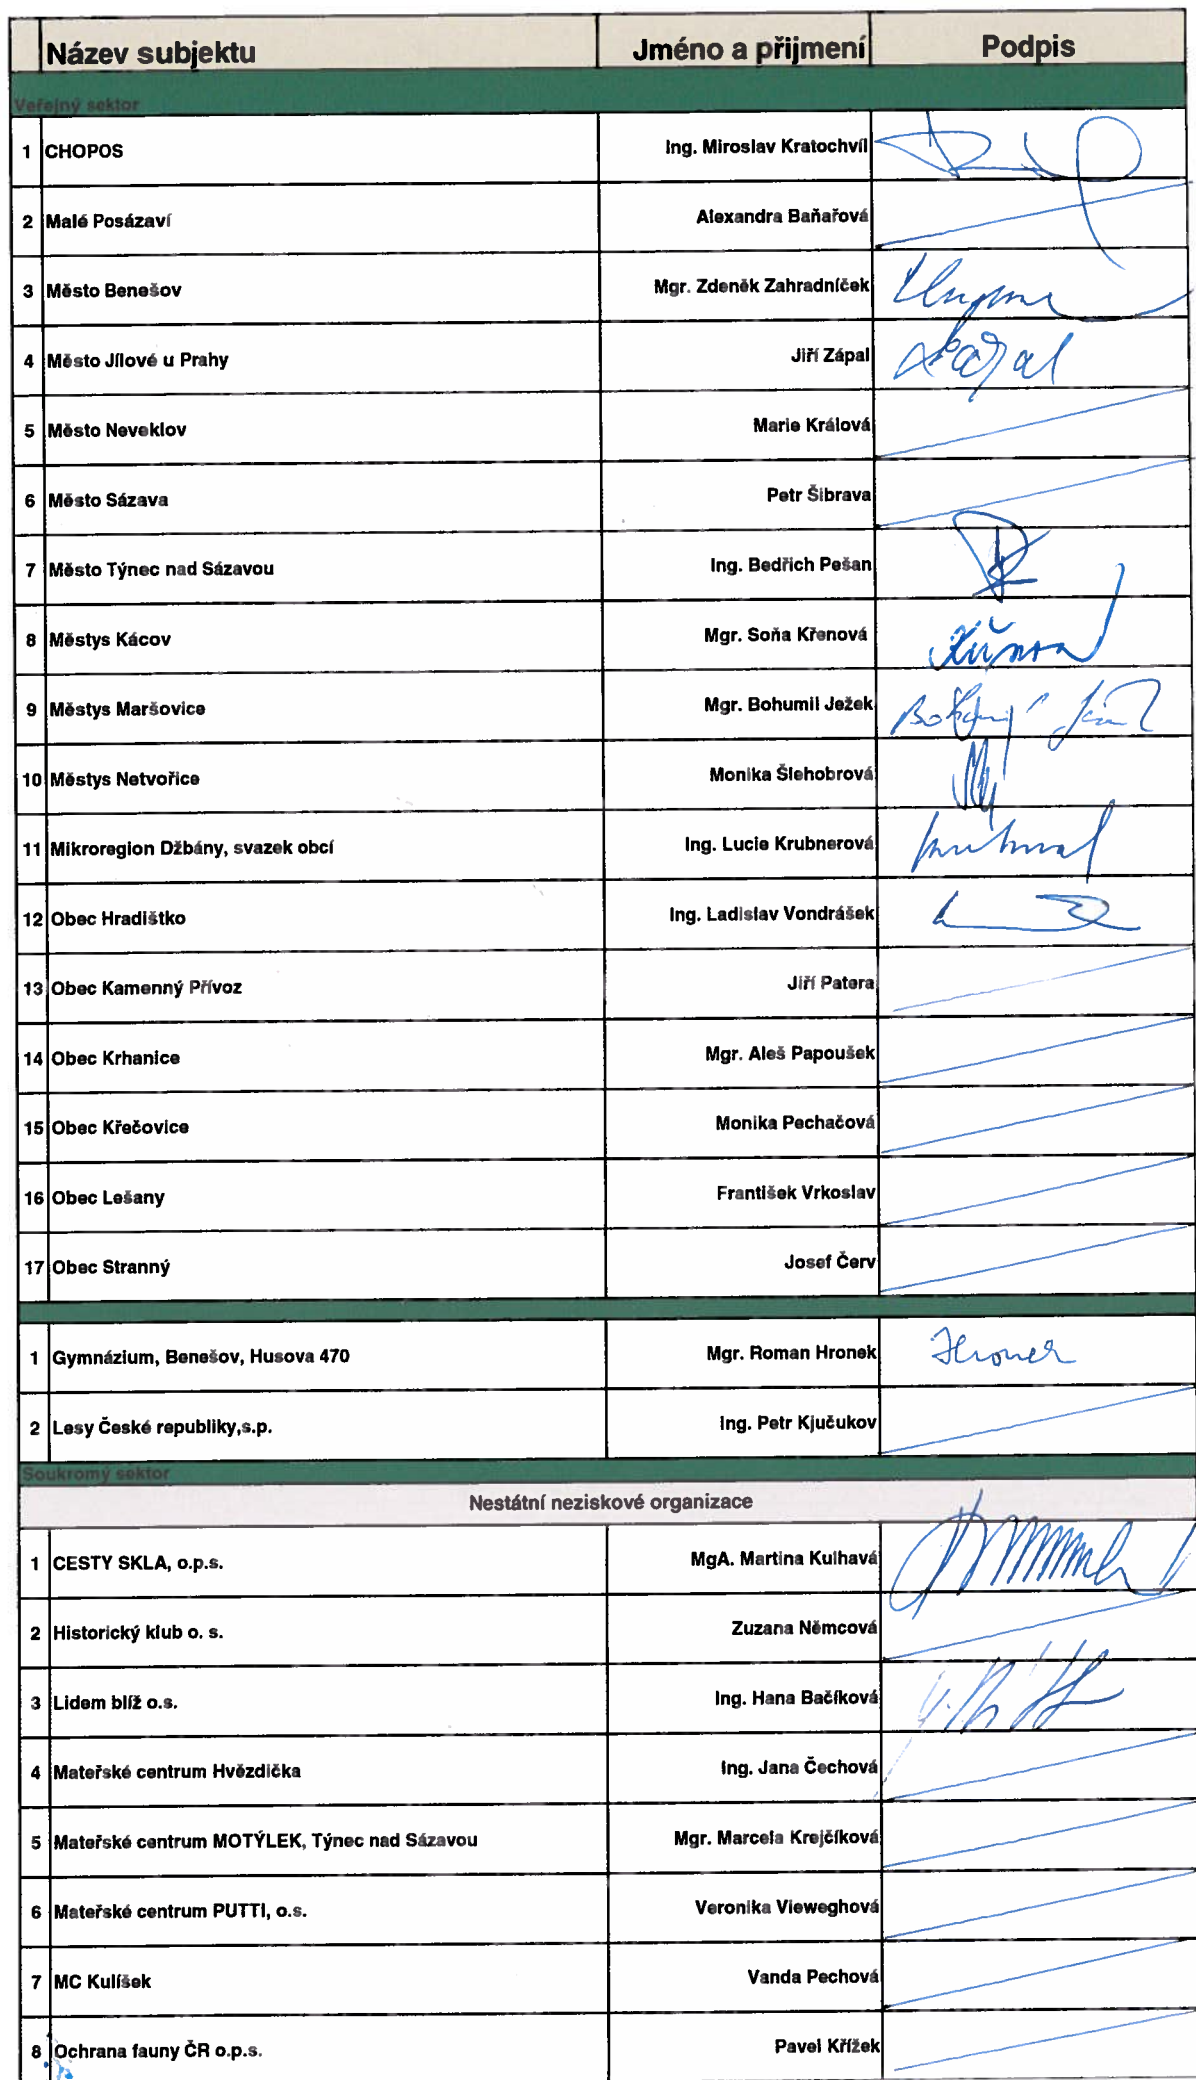 Název subjektu Jméno a přijmení Podpis
Veřejný sektor
1 CHOPOS Ing. Miroslav Kratochvíl
2 Malé Posázaví Alexandra Baňařová
3 Město Benešov Mgr. Zdeněk Zahradníček
4 Město Jílové u Prahy Jiří Zápal
5 Město Neveklov Marie Králová
6 Město Sázava Petr Šibrava
7 Město Týnec nad Sázavou Ing. Bedřich Pešan
8 Městys Kácov Mgr. Soňa Křenová
9 Městys Maršovice Mgr. Bohumil Ježek
10 Městys Netvořice Monika Šlehobrová
11 Mikroregion Džbány, svazek obcí Ing. Lucie Krubnerová
12 Obec Hradištko Ing. Ladislav Vondrášek
13 Obec Kamenný Přívoz Jiří Patera
14 Obec Krhanice Mgr. Aleš Papoušek
15 Obec Křečovice Monika Pechačová
16 Obec Lešany František Vrkoslav
17 Obec Stranný Josef Červ
1 Gymnázium, Benešov, Husova 470 Mgr. Roman Hronek Hronek
2 Lesy České republiky,s.p. Ing. Petr Kjučukov
Soukromý sektor
Nestátní neziskové organizace
1 CESTY SKLA, o.p.s. MgA. Martina Kulhavá
2 Historický klub o. s. Zuzana Němcová
3 Lidem blíž o.s. Ing. Hana Bačíková
4 Mateřské centrum Hvězdička Ing. Jana Čechová
5 Mateřské centrum MOTÝLEK, Týnec nad Sázavou Mgr. Marcela Krejčíková
6 Mateřské centrum PUTTI, o.s. Veronika Vieweghová
7 MC Kulíšek Vanda Pechová
8 Ochrana fauny ČR o.p.s. Pavel Křížek